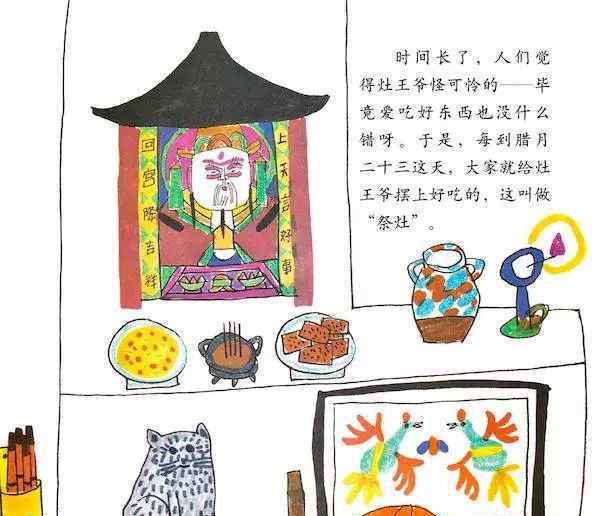 时间长了，人们觉
得灶王爷怪可怜的——毕
竟爱吃好东西也没什么
错呀。于是，每到腊月
二十三这天，大家就给灶
王爷摆上好吃的，这叫做
“祭灶”。
上天言好事
回宫降吉祥